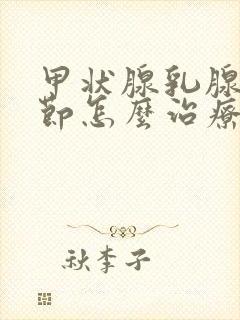 甲状腺乳腺
節怎麼治療
秋李子